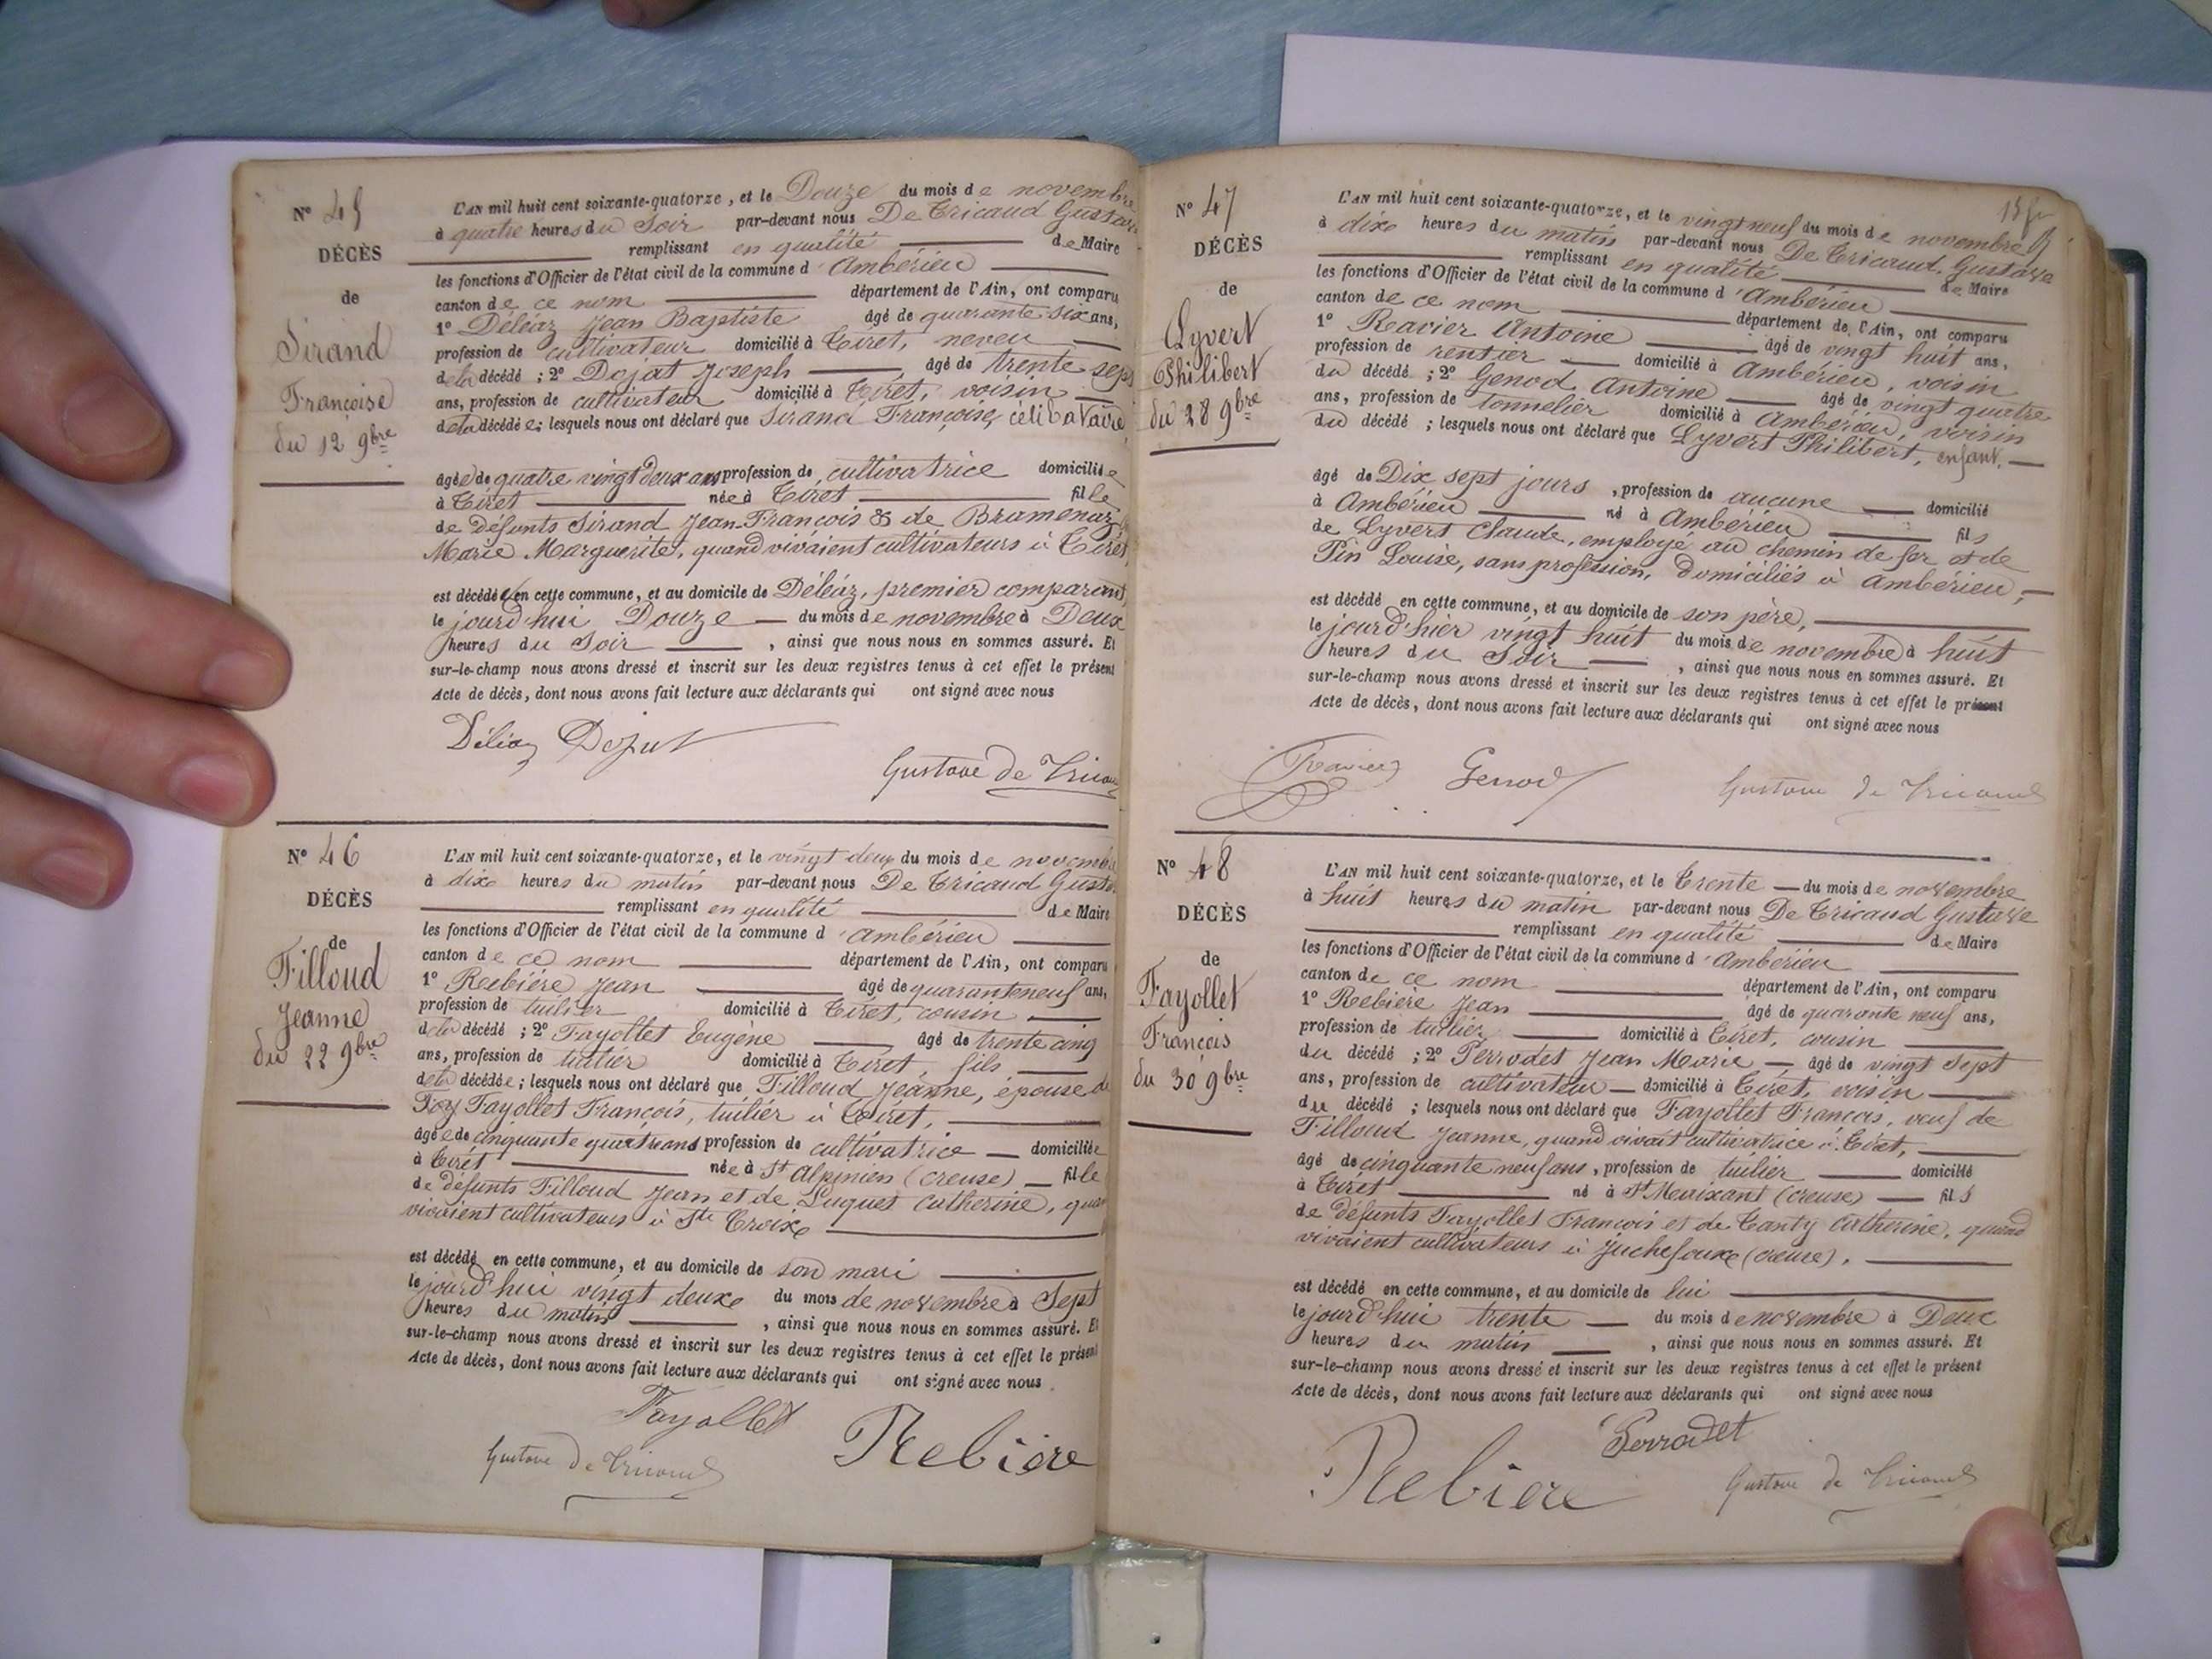 N° 45
DÉCÈS
de
Sirand
Françoise
du 12 9bre
L'AN mil huit cent soixante-quatorze, et le Douze du mois de novembre
à quatre heures du Soir par-devant nous De Tricaud Gustave
remplissant en qualité de Maire
les fonctions d'Officier de l'état civil de la commune d'Ambérieu
canton de ce nom département de l'Ain, ont comparu
1° Déléaz Jean Baptiste âgé de quarante-six ans,
profession de cultivateur domicilié à Tiret, neveu
de la décédé ; 2° Dojat Joseph, âgé de trente sept
ans, profession de cultivateur domicilié à Tiret, voisin
de la décédée; lesquels nous ont déclaré que Sirand Françoise, célibataire,
âgée de quatre vingt deux ans profession de cultivatrice domiciliée
à Tiret née à Tiret fille
de défunts Sirand Jean-François & de Bramenaz
Marie Marguerite, quand vivaient cultivateurs à Tiret,
est décédée en cette commune, et au domicile de Déléaz, premier comparant,
le jourd'hui Douze du mois de novembre à Deux
heures du Soir, ainsi que nous nous en sommes assuré. Et
sur-le-champ nous avons dressé et inscrit sur les deux registres tenus à cet effet le présent
Acte de décès, dont nous avons fait lecture aux déclarants qui ont signé avec nous
Déléaz Dojat
Gustave de Tricaud
N° 46
DÉCÈS
de
Filloud
Jeanne
du 22 9bre
L'AN mil huit cent soixante-quatorze, et le vingt deux du mois de novembre
à dix heures du matin par-devant nous De Tricaud Gustave
remplissant en qualité de Maire
les fonctions d'Officier de l'état civil de la commune d'Ambérieu
canton de ce nom département de l'Ain, ont comparu
1° Rebière Jean âgé de quarante neuf ans,
profession de tuilier domicilié à Tiret, cousin
de la décédé ; 2° Fayollet Eugène âgé de trente cinq
ans, profession de tuilier domicilié à Tiret, fils
de la décédée; lesquels nous ont déclaré que Filloud Jeanne, épouse de
Fayollet François, tuilier à Tiret,
âgée de cinquante quatre ans profession de cultivatrice domiciliée
à Tiret née à St Alpinien (Creuse) fille
de défunts Filloud Jean et de Luquet Catherine, quand
vivaient cultivateurs à Ste Croix
est décédé en cette commune, et au domicile de son mari
le jourd'hui vingt deux du mois de novembre à Sept
heures du matin, ainsi que nous nous en sommes assuré. Et
sur-le-champ nous avons dressé et inscrit sur les deux registres tenus à cet effet le présent
Acte de décès, dont nous avons fait lecture aux déclarants qui ont signé avec nous
Fayollet
Gustave de Tricaud Rebiere
N° 47
DÉCÈS
de
Lyvert
Philibert
du 28 9bre
L'AN mil huit cent soixante-quatorze, et le vingt neuf du mois de novembre
à dix heures du matin par-devant nous De Tricaud Gustave
remplissant en qualité de Maire
les fonctions d'Officier de l'état civil de la commune d'Ambérieu
canton de ce nom département de l'Ain, ont comparu
1° Ravier Antoine âgé de vingt huit ans,
profession de rentier domicilié à Ambérieu, voisin
du décédé ; 2° Genod Antoine âgé de vingt quatre
ans, profession de tonnelier domicilié à Ambérieu, voisin
du décédé ; lesquels nous ont déclaré que Lyvert Philibert, enfant,
âgé de Dix sept jours, profession de aucune domicilié
à Ambérieu né à Ambérieu fils
de Lyvert Claude, employé au chemin de fer et de
Pin Louise, sans profession, domiciliés à Ambérieu,
est décédé en cette commune, et au domicile de son père,
le jourd'hier vingt huit du mois de novembre à huit
heures du Soir, ainsi que nous nous en sommes assuré. Et
sur-le-champ nous avons dressé et inscrit sur les deux registres tenus à cet effet le présent
Acte de décès, dont nous avons fait lecture aux déclarants qui ont signé avec nous
Ravier Genod Gustave de Tricaud
N° 48
DÉCÈS
de
Fayollet
François
du 30 9bre
L'AN mil huit cent soixante-quatorze, et le Trente du mois de novembre
à huit heures du matin par-devant nous De Tricaud Gustave
remplissant en qualité de Maire
les fonctions d'Officier de l'état civil de la commune d'Ambérieu
canton de ce nom département de l'Ain, ont comparu
1° Rebière Jean âgé de quarante neuf ans,
profession de tuilier domicilié à Tiret, cousin
du décédé ; 2° Perrodet Jean Marie âgé de vingt sept
ans, profession de cultivateur domicilié à Tiret, voisin
du décédé ; lesquels nous ont déclaré que Fayollet François, veuf de
Filloud Jeanne, quand vivait cultivatrice à Tiret,
âgé de cinquante neuf ans, profession de tuilier domicilié
à Tiret né à St Maixant (Creuse) fils
de défunts Fayollet François et de Tanty Catherine, quand
vivaient cultivateurs à Juchefaux (Creuse).
est décédé en cette commune, et au domicile de lui
le jourd'hui trente du mois de novembre à Deux
heures du matin, ainsi que nous nous en sommes assuré. Et
sur-le-champ nous avons dressé et inscrit sur les deux registres tenus à cet effet le présent
Acte de décès, dont nous avons fait lecture aux déclarants qui ont signé avec nous
Perrodet
Rebiere Gustave de Tricaud